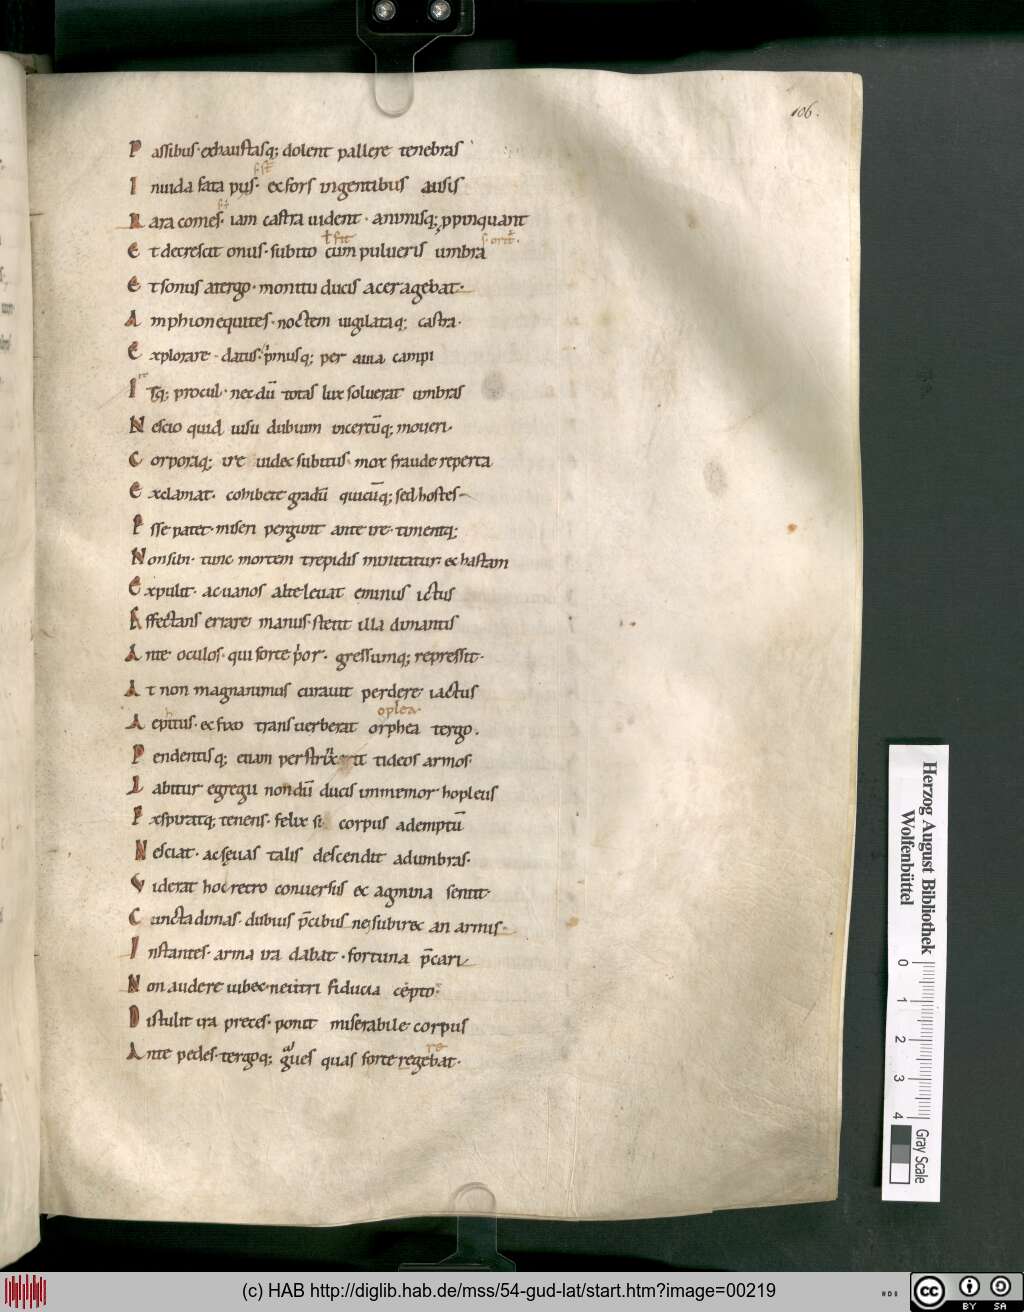 106.
Passibus exhaustasq; dolent pallere tenebras
Inuida fata pus. ecfors ingentibus ausis
Rara comes. iam castra uident. animisq; ppinquant
Et decrescit onus. subito cum pulueris umbra
Et sonus atergo. monitu ducis acer agebat.
Amphion equites. noctem uigilataq; castra.
Explorare. datus. pmusq; per auia campi
procul. nec dū totas lux soluerat umbras
Nescio quid uisu dubium incertūq; moueri.
Corporaq; ire uidec subitus mox fraude reperta
Exclamat. cohibete gradū quicūq; sed hostes
Esse patet. miseri pergunt ante ire. timentq;
Nonsibi. tunc mortem trepidis minitatur. ec hastam
Expulit. ac uanos alte leuat eminus ictus
Affectans errare manus. stetit illa dimantis
Ante oculos. qui forte por. gressumq; repressit.
At non magnanimus curauit perdere iactus
oplea.
Aepitus. ec fixo transuerberat orphea tergo.
Pendentisq; etiam perstrixit tideos armos.
Labitur egregii nondū ducis immemor hopleus
Exspiratq; tenens. felix si corpus ademptū
Nesciat. ac seuas talis descendit adumbras.
Viderat hoc retro conuersus ec agmina sentit.
Cuncta dimas. dubius pcibus ne subirec an armis.
Instantes. arma ira dabat. fortuna pcari
Non audere iubec. neutri fiducia cepto.
Distulit ira preces. ponit miserabile corpus
Ante pedes. tergoq; gues quas forte regebat.
Herzog August Bibliothek
Wolfenbüttel
0 1 2 3 4
Gray Scale
(c) HAB http://diglib.hab.de/mss/54-gud-lat/start.htm?image=00219
cc BY SA